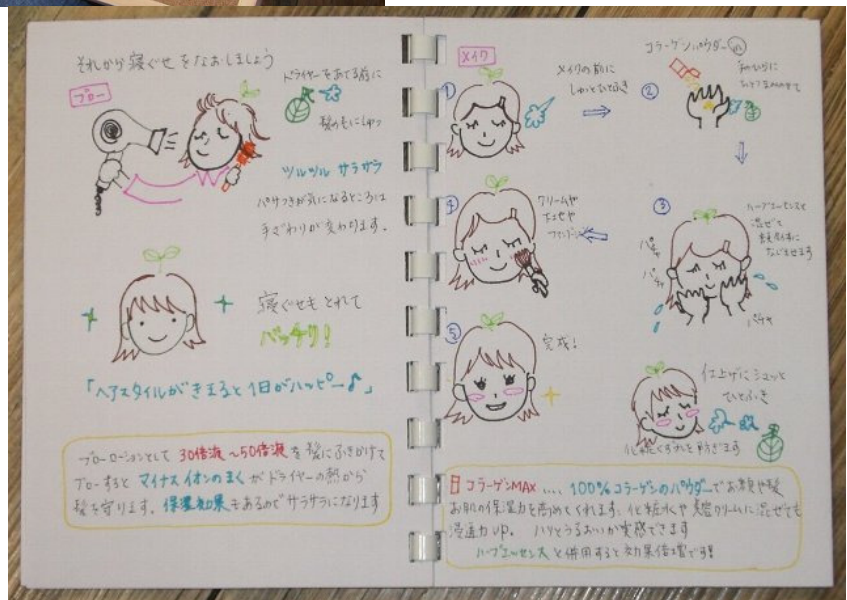 それから寝ぐせをなおしましょう
ブロー
ドライヤーをあてる前に
髪のもにしゅっ
ツルツル サラサラ
パサつきが気になるところは
手ざわりが変わります。
寝ぐせも とれて
バッチリ!
「ヘアスタイルがきまると1日がハッピー♪」
ブローローションとして 30倍液〜50倍液 を髪にふきかけて
ブローすると マイナスイオンのまく がドライヤーの熱から
髪を守ります。保湿効果もあるのでサラサラになります
メイク
①
メイクの前に
しゅっとひとふき
②
コラーゲンパウダー
手のひらに
③
ハーブエッセンスと
混ぜて
なじませます
パチャ
パチャ
パチャ
④
クリームや
⑤
完成!
仕上げにシュッと
ひとふき
化粧くずれを防ぎます
コラーゲンMAX .... 100%コラーゲンのパウダーでお顔や髪
お肌の保湿力を高めてくれます。化粧水や美容クリームに混ぜても
浸透力UP。 ハリとうるおいが実感できます
ハーブエッセンス と併用すると効果倍増です!